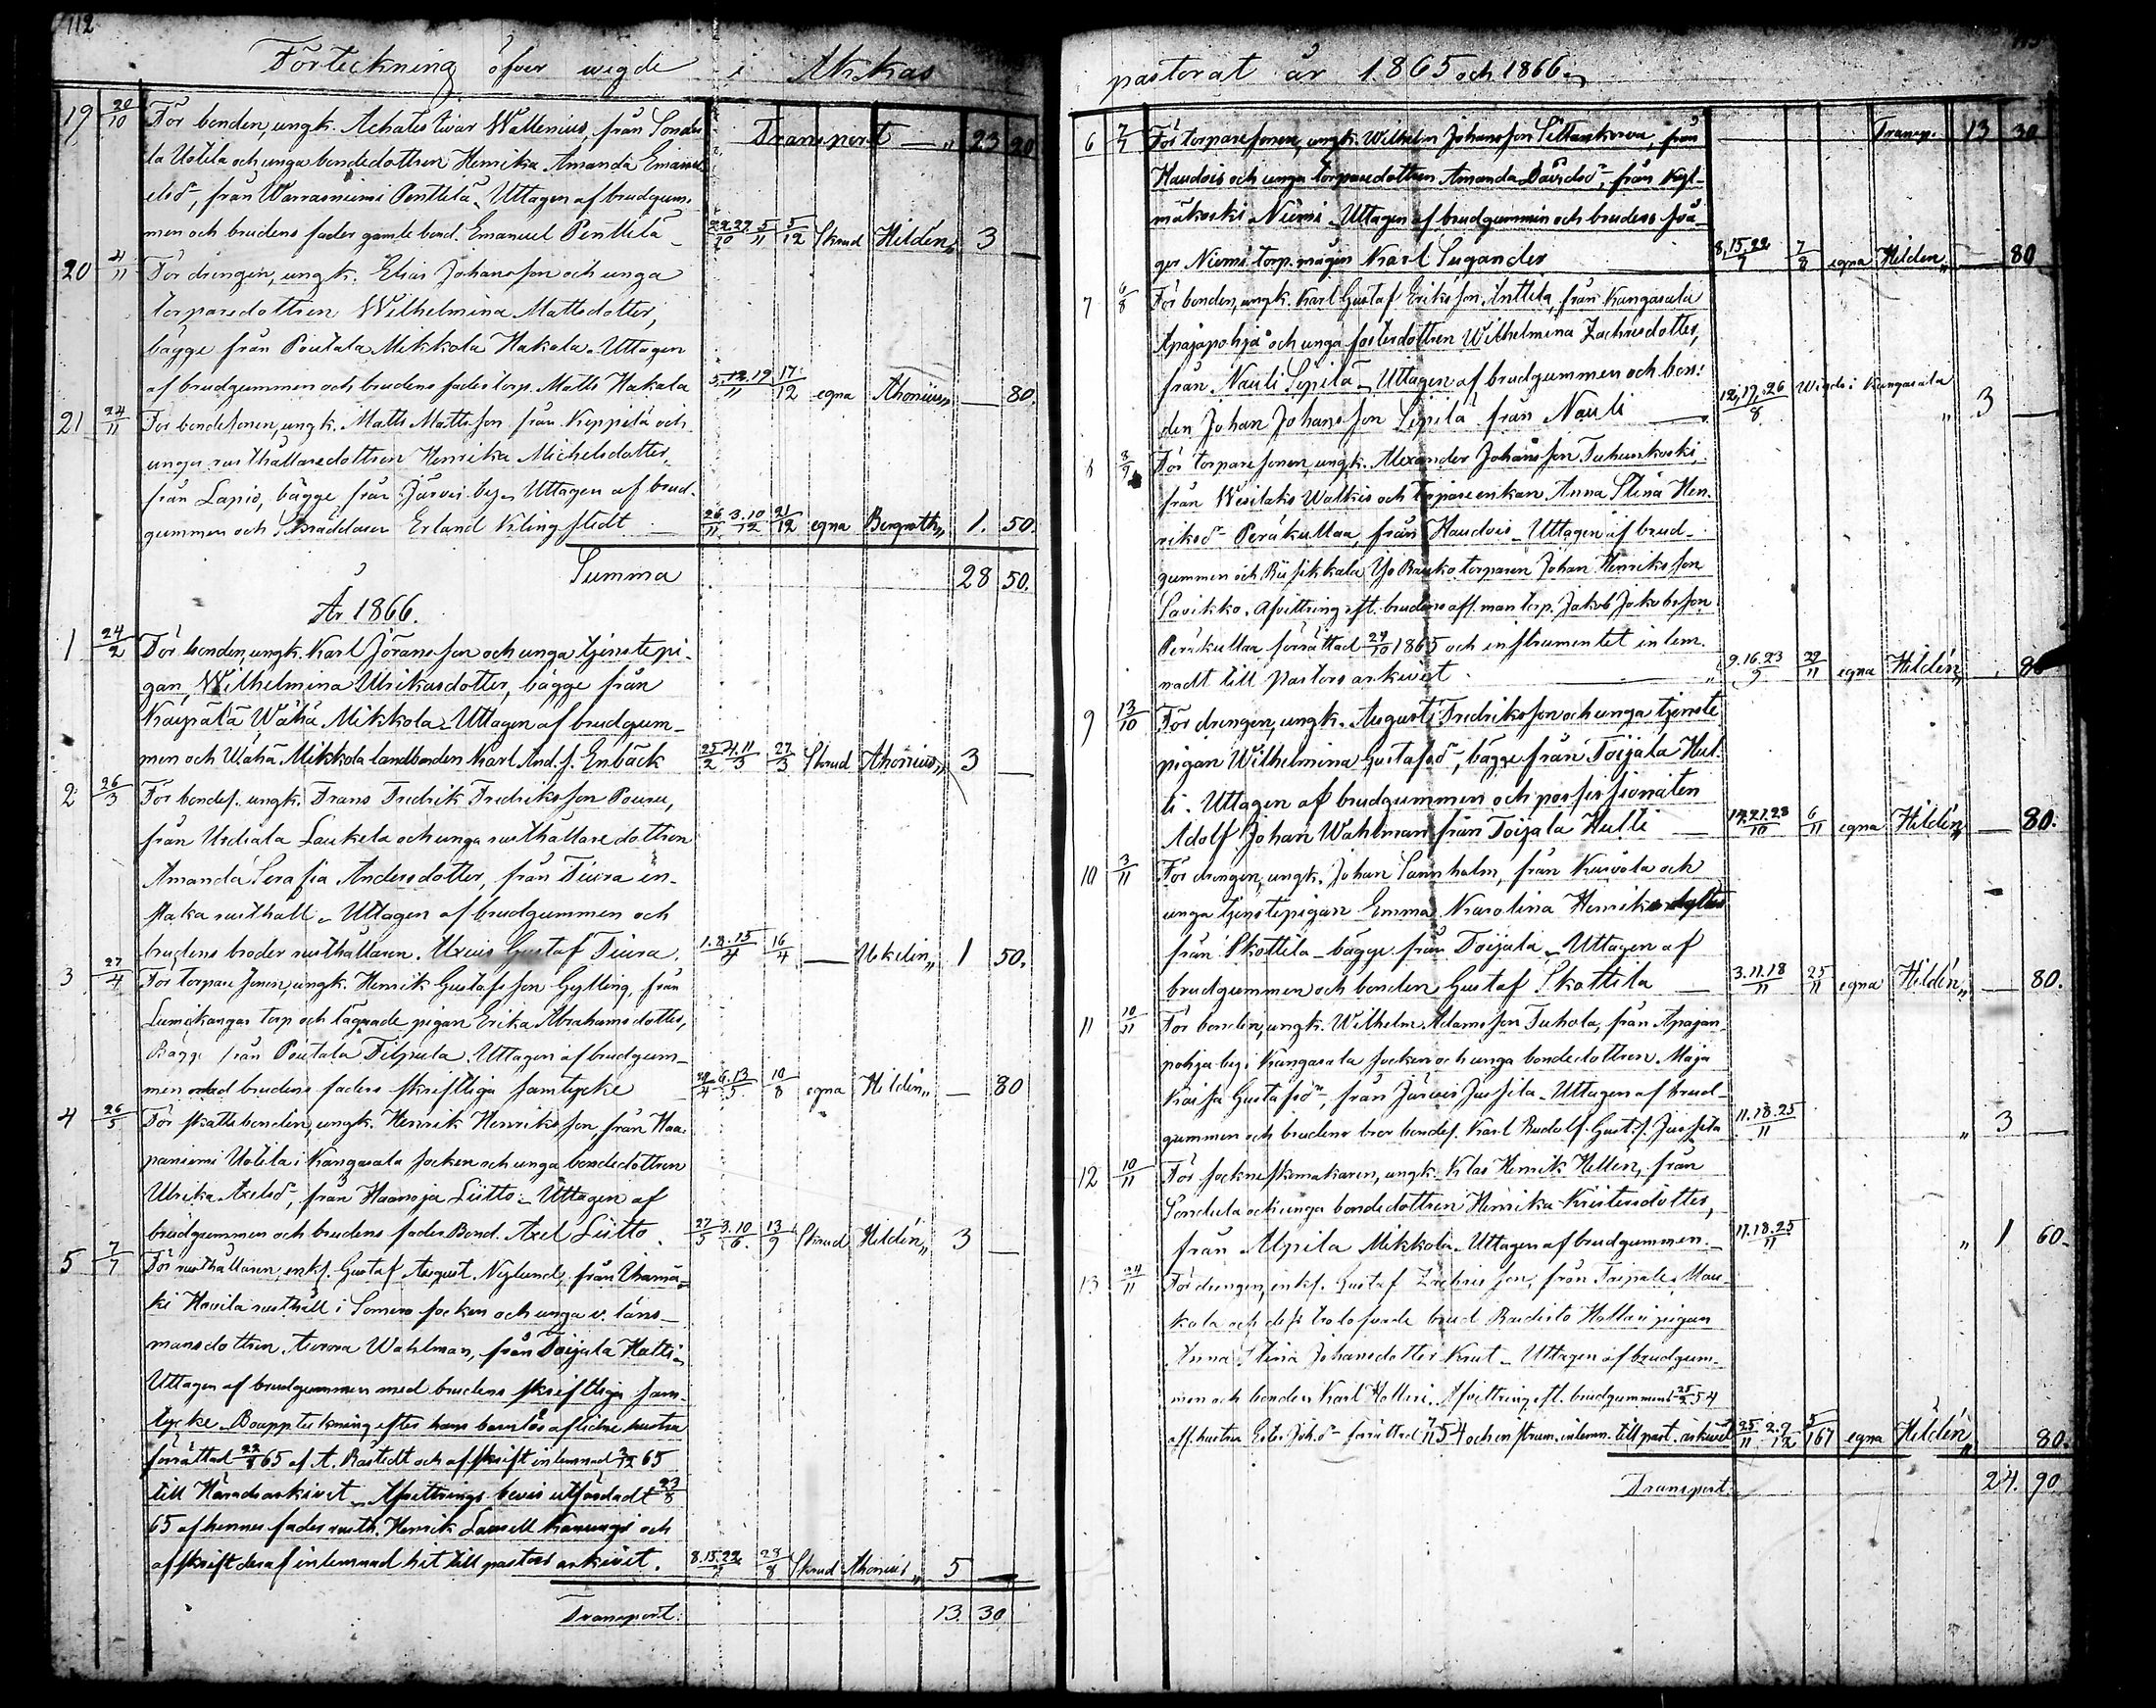 112
Förteckning öfver wigde i Akkas
19 20/10 För bonden, ungk. Achates Iwar Wallenius, från Sondu Transport — „ 23 20
la Uotila och unga bondedottren Henrika Amanda Emanu
elsdr, från Warrasniemi Penttilä. Uttagen af brudgum-
men och brudens fader gamle bond. Emanuel Penttilä 22.27/10 5/11 5/12 Skrud Hildén „ 3 —
20 4/11 För drengen, ungk. Elias Johansson och unga
torparedottren Wilhelmina Mattsdotter,
bägge från Poutala Mikkola Hakala. Uttagen
af brudgummen och brudens fader torp. Matts Hakala 5.12.19/11 17/12 egna Ahonius „ — 80.
21 24/11 För bondesonen, ungk. Matts Mattsson från Keppilä och
unga rusthållaredottren Henrika Michelsdotter,
från Lapio, bägge från Järvis by. Uttagen af brud-
gummen och Skräddaren Erland Klingstedt 26/11 3.10/12 21/12 egna Bergroth „ 1. 50.
Summa 28 50.
År 1866.
1 24/2 För bonden, ungk. Karl Göransson och unga tjenstepi-
gan, Wilhelmina Ulrikasdotter, bägge från
Kräipälä Wähä Mikkola. Uttagen af brudgum-
men och Wähä Mikkola landbonden Karl And. s. Enbäck 25/2 4.11/3 27/3 Skrud Ahonius „ 3 —
2 26/3 För bondes. ungk. Frans Fredrik Fredriksson Pouru,
från Urdiala Laukela och unga rusthållaredottren
Amanda Serafia Andersdotter, från Tiura in-
Maka rusthåll. Uttagen af brudgummen och
brudens broder rusthållaren. Gustaf Tiura. 1.8.15/4 16/4 — Uskelin „ 1 50.
3 27/4 För torparesonen, ungk. Henrik Gustafsson Gylling, från
Lumikangas torp och lägrade pigan Erika Abrahamsdotter,
Bägge från Poutala Filpula. Uttagen af brudgum-
men med brudens faders skriftliga samtycke 29/4 6.13/5 10/8 egna Hildén „ — 80
4 26/5 För skattebonden, ungk. Henrik Henriksson, från Haa-
paniemi Uotila i Kangasala socken och unga bondedottren
Ulrika Axelsdr, från Haanoja Liitto. Uttagen af
brudgummen och brudens fader Bond. Axel Liitto. 27/5 3.10/6 13/9 Skrud Hildén „ 3 —
5 7/7 För rusthållaren, enkl. Gustaf August Nylund, från
ki Hovila rusthåll i Somero socken och unga v. läns-
mansdottren Aurora Wahlman, från Toijala Hulli.
Uttagen af brudgummen med brudens skriftliga sam-
tycke. Bouppteckning efter hans barnlös aflidne hustru
förrättad 22/8 65 af A. Råstedt och afskrift inlemnad 2/12 65
till Häradsarkivet. Afvittrings bevis utfärdadt 23/8
65 af hennes fader rusth. Henrik Laurell och
afskrift deraf inlemnad hit till pastors arkivet. 8.15.22/7 28/8 Skrud Ahonius „ 5 —
Transport: 13. 30
pastorat år 1865 och 1866.
6 7/7 För torparesonen, ungk. Wilhelm Johansson Siltankorva, från Transp. 13 30
Haudois och unga torparedottren Amanda Davidsdr, från Kyl-
mäkoski Niemi. Uttagen af brudgummin och brudens svå-
ger Niemi torp. mågen Karl Sugander 8.15.22/7 7/8 egna Hildén „ — 80
7 6/8 För bonden, ungk. Karl Gustaf Eriksson Anttila, från Kangasala
Apajapohja och unga fosterdottren Wilhelmina Zachrisdotter,
från Nauli Sipilä. Uttagen af brudgummen och bon-
den Johan Johansson Sipilä från Nauli 12.19.26/8 Wigde i Kangasala „ 3 —
8 8/9 För torparesonen, ungk. Alexander Johansson Tuhunkoski,
från Wesilaks Walkis och torpareenkan Anna Stina Hen-
riksdr Peräkullaa, från Haudois. Uttagen af brud-
gummen och Riisikkala Yö Rauko torparen Johan Henriksson
Savikko. Afvittring eft. brudens afl. man torp. Jakob Jakobsson
Peräkullaa förrättad 24/10 1865 och instrumentet inlem-
nadt till Pastors arkivet 9.16.23/9 29/11 egna Hildén „ 80
9 13/10 För drengen, ungk. August Fredriksson och unga tjenste
pigan Wilhelmina Gustafsdr, bägge från Toijala Hul-
li. Uttagen af brudgummen och possessionaten
Adolf Johan Wahlman från Toijala Hulli 14.21.28/10 6/11 egna Hildén — 80.
10 3/11 För drengen, ungk. Johan Sannholm, från Kurvola och
unga tjenstepigan Emma Karolina Henriksdotter
från Skottila – bägge från Toijala. Uttagen af
brudgummen och bonden Gustaf Skottila 3.11.18/11 25/11 egna Hildén „ — 80.
11 10/11 För bonden, ungk. Wilhelm Adamsson Tuhola, från Apajan-
pohja by i Kangasala socken och unga bondedottren Maja
Kaisa Gustafsdr, från Järvis Jussila. Uttagen af brud-
gummen och brudens bror bondes. Karl Rudolf Gust. s. Jussila 11.18.25/11 „ 3 —
12 10/11 För sockneskomakaren, ungk. Klas Henrik Hellén, från
Sondula och unga bondedottren Henrika Kristersdotter,
från Alpila Mikkola. Uttagen af brudgummen. 11.18.25/11 „ 1 60.
13 24/11 För drengen, enkl. Gustaf Zachrisson, från Taipale Mau-
kola och dess trolofvade brud Raudisto Hollari pigan
Anna Stina Johansdotter Krut. Uttagen af brudgum-
men och bonden Karl Hollari. Afvittring eft. brudgummens 25/2 54
afl. hustru Ester Joh.dr förrättad 7/11 54 och instrum. inlemn. till past. arkivet 25/11 2.9/12 5/1 67 egna Hildén „ 80.
Transport. 24. 90